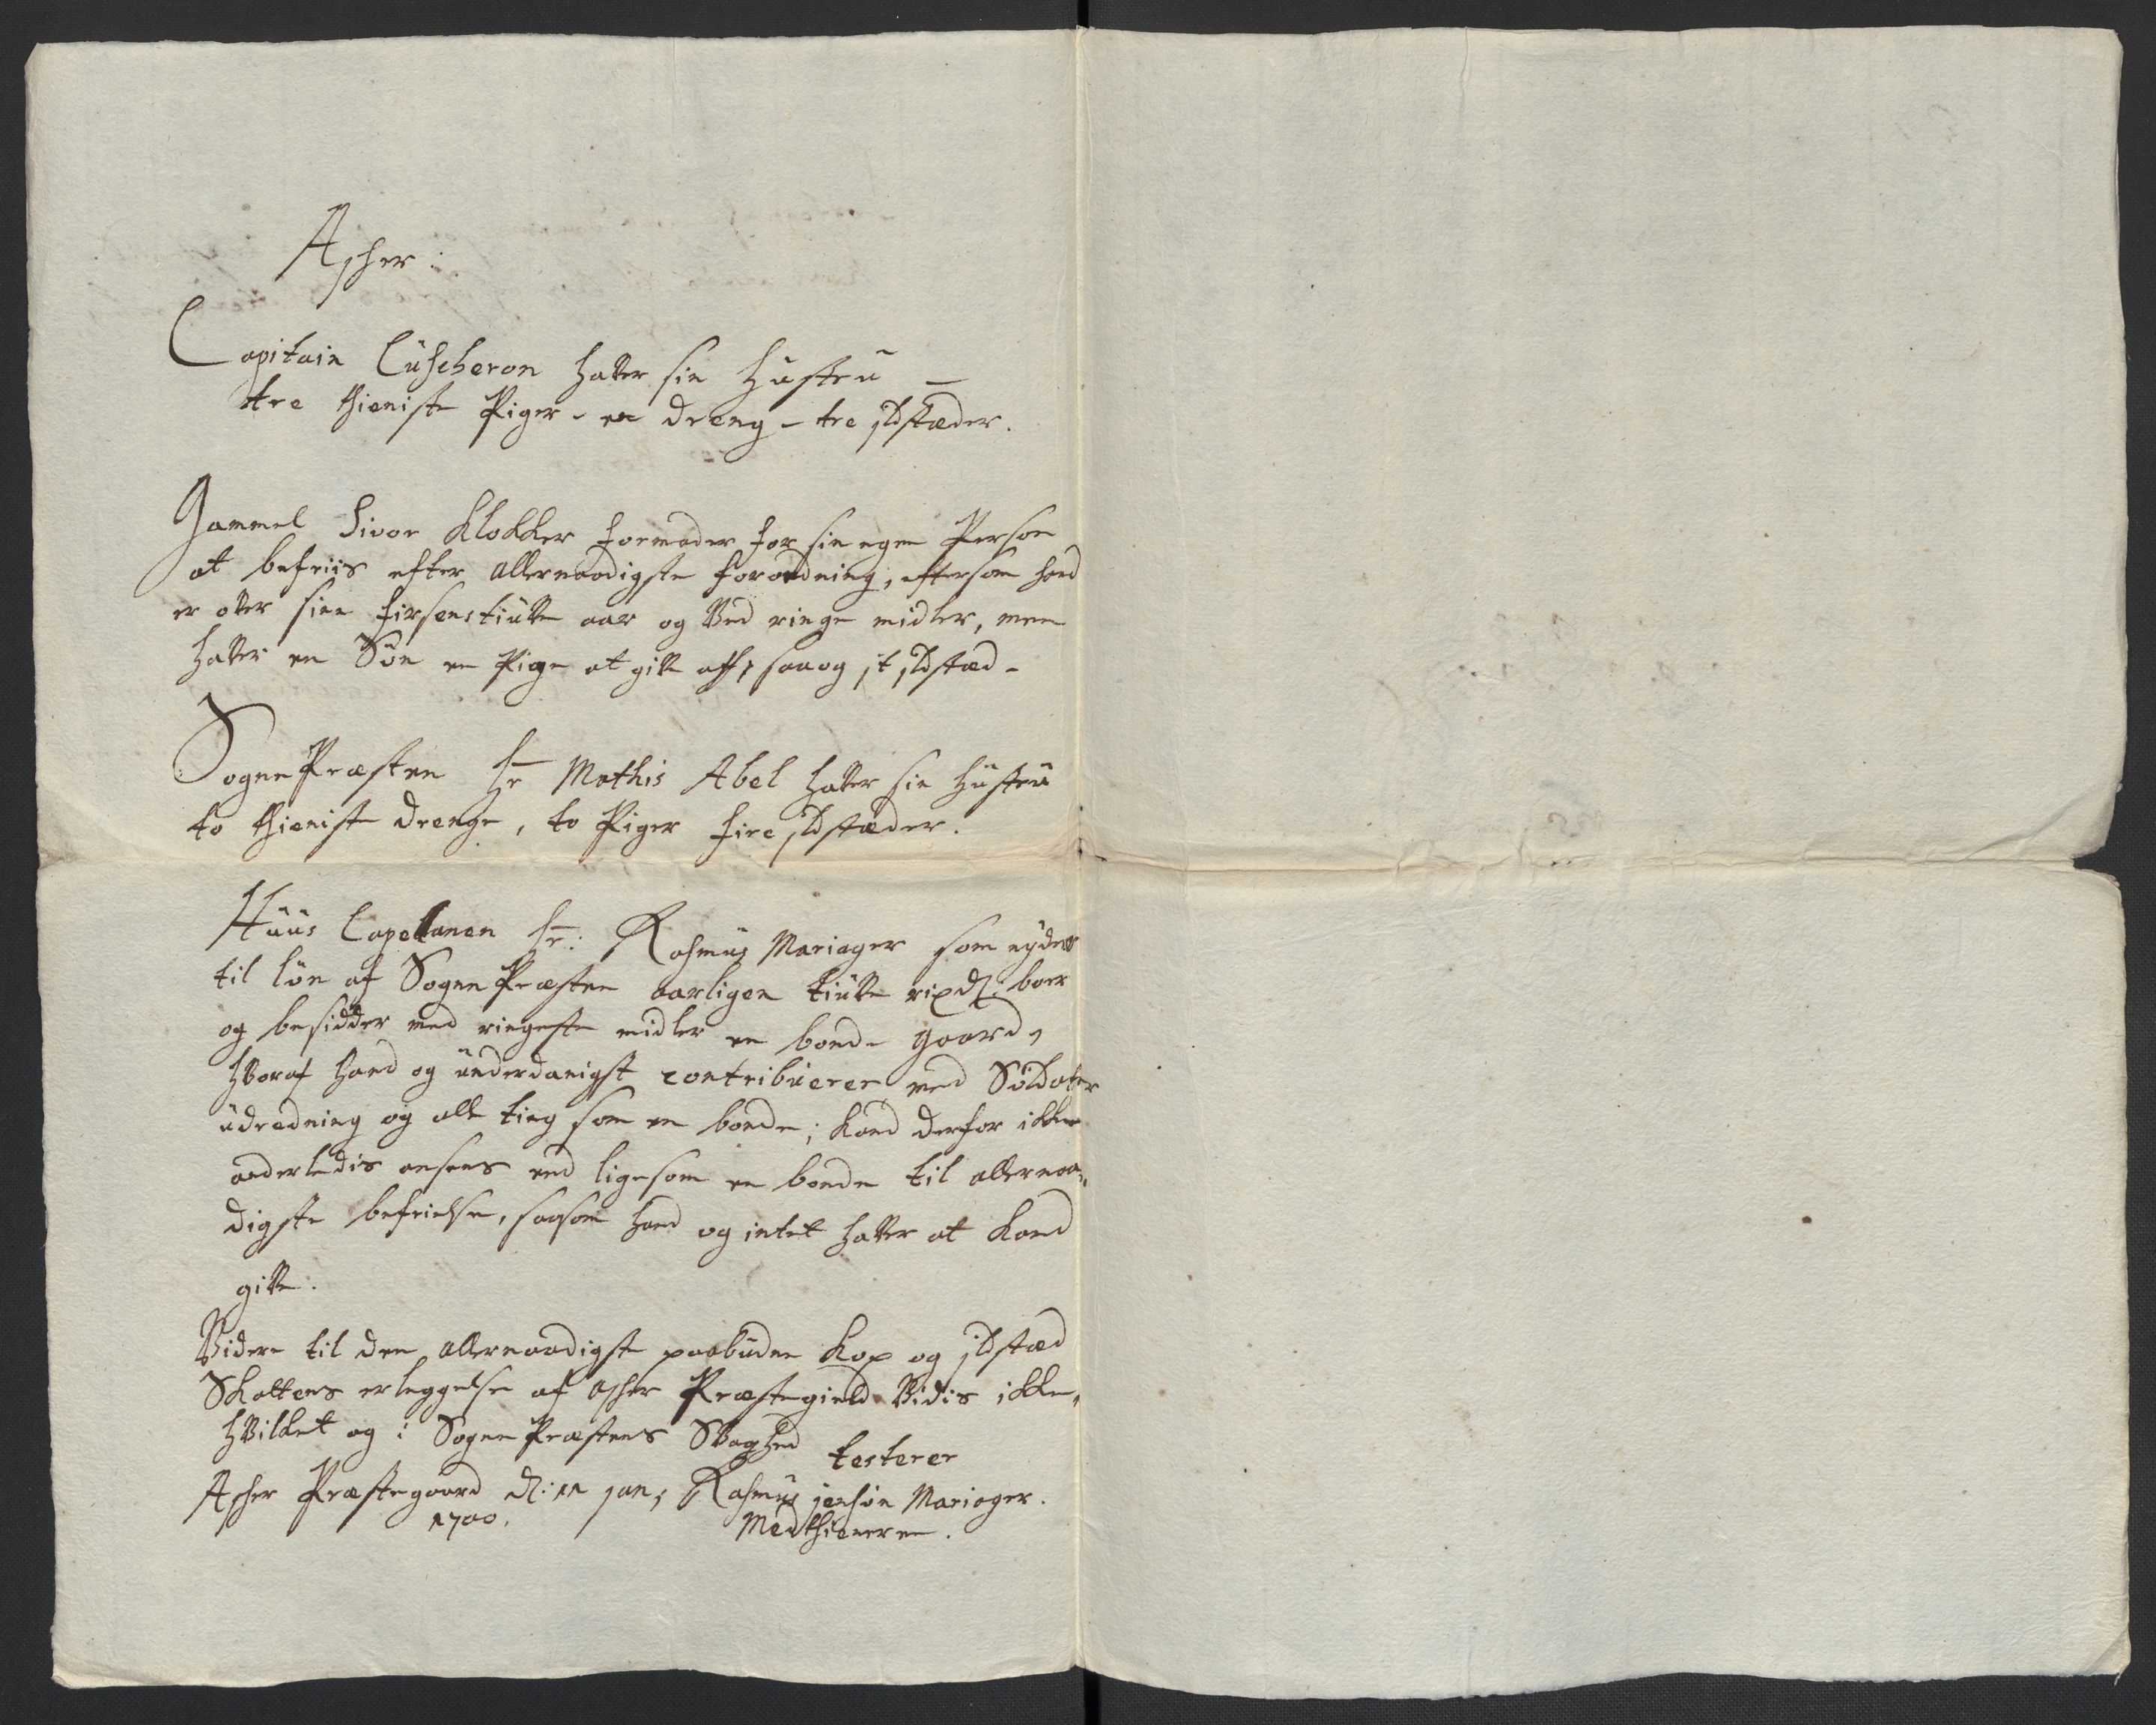 Asher:
Capitain Cüscheron hafver sin Hustru –
tre thieniste Piger – en dreng – tre ildstæder.
Gammel Sivor Klokker formoder for sin egen Person
at befriis efter allernaadigste forordning, eftersom hand
er ofver sine firsenstiufve aar og ved ringe midler, men
hafver en Søn en Pige at gifve aff, saa og it ildstæd –
Sogne Præsten Hr Mathis Abel hafver sin hüstrü
to thieniste drenge, to Piger fire ildstæder.
Hüüs Capellanen Hr: Rasmus Mariager som nyder
til løn af Sogne Præsten aarligen tiufve rixdl: boer
og besidder med ringeste midler en bonde gaard,
hvoraf hand og ünderdanigst contribüerer med Soldater
üdredning og alle ting som en bonde; kand derfor ikke
anderledis ansees end ligesom en bonde til allernaa-
digste befrielse, saasom hand og intet hafver at kand
gifve.
Videre til den allernaadigst paabudne Kop og ildstæd
Skattens erleggelse af Asher Præstegield vidis ikke,
hvilket og i Sogne Præstens Svaghed testerer
Asher Præstegaard dl: 11 jan; Rasmus jensøn Mariager.
1700. Medthieneren.